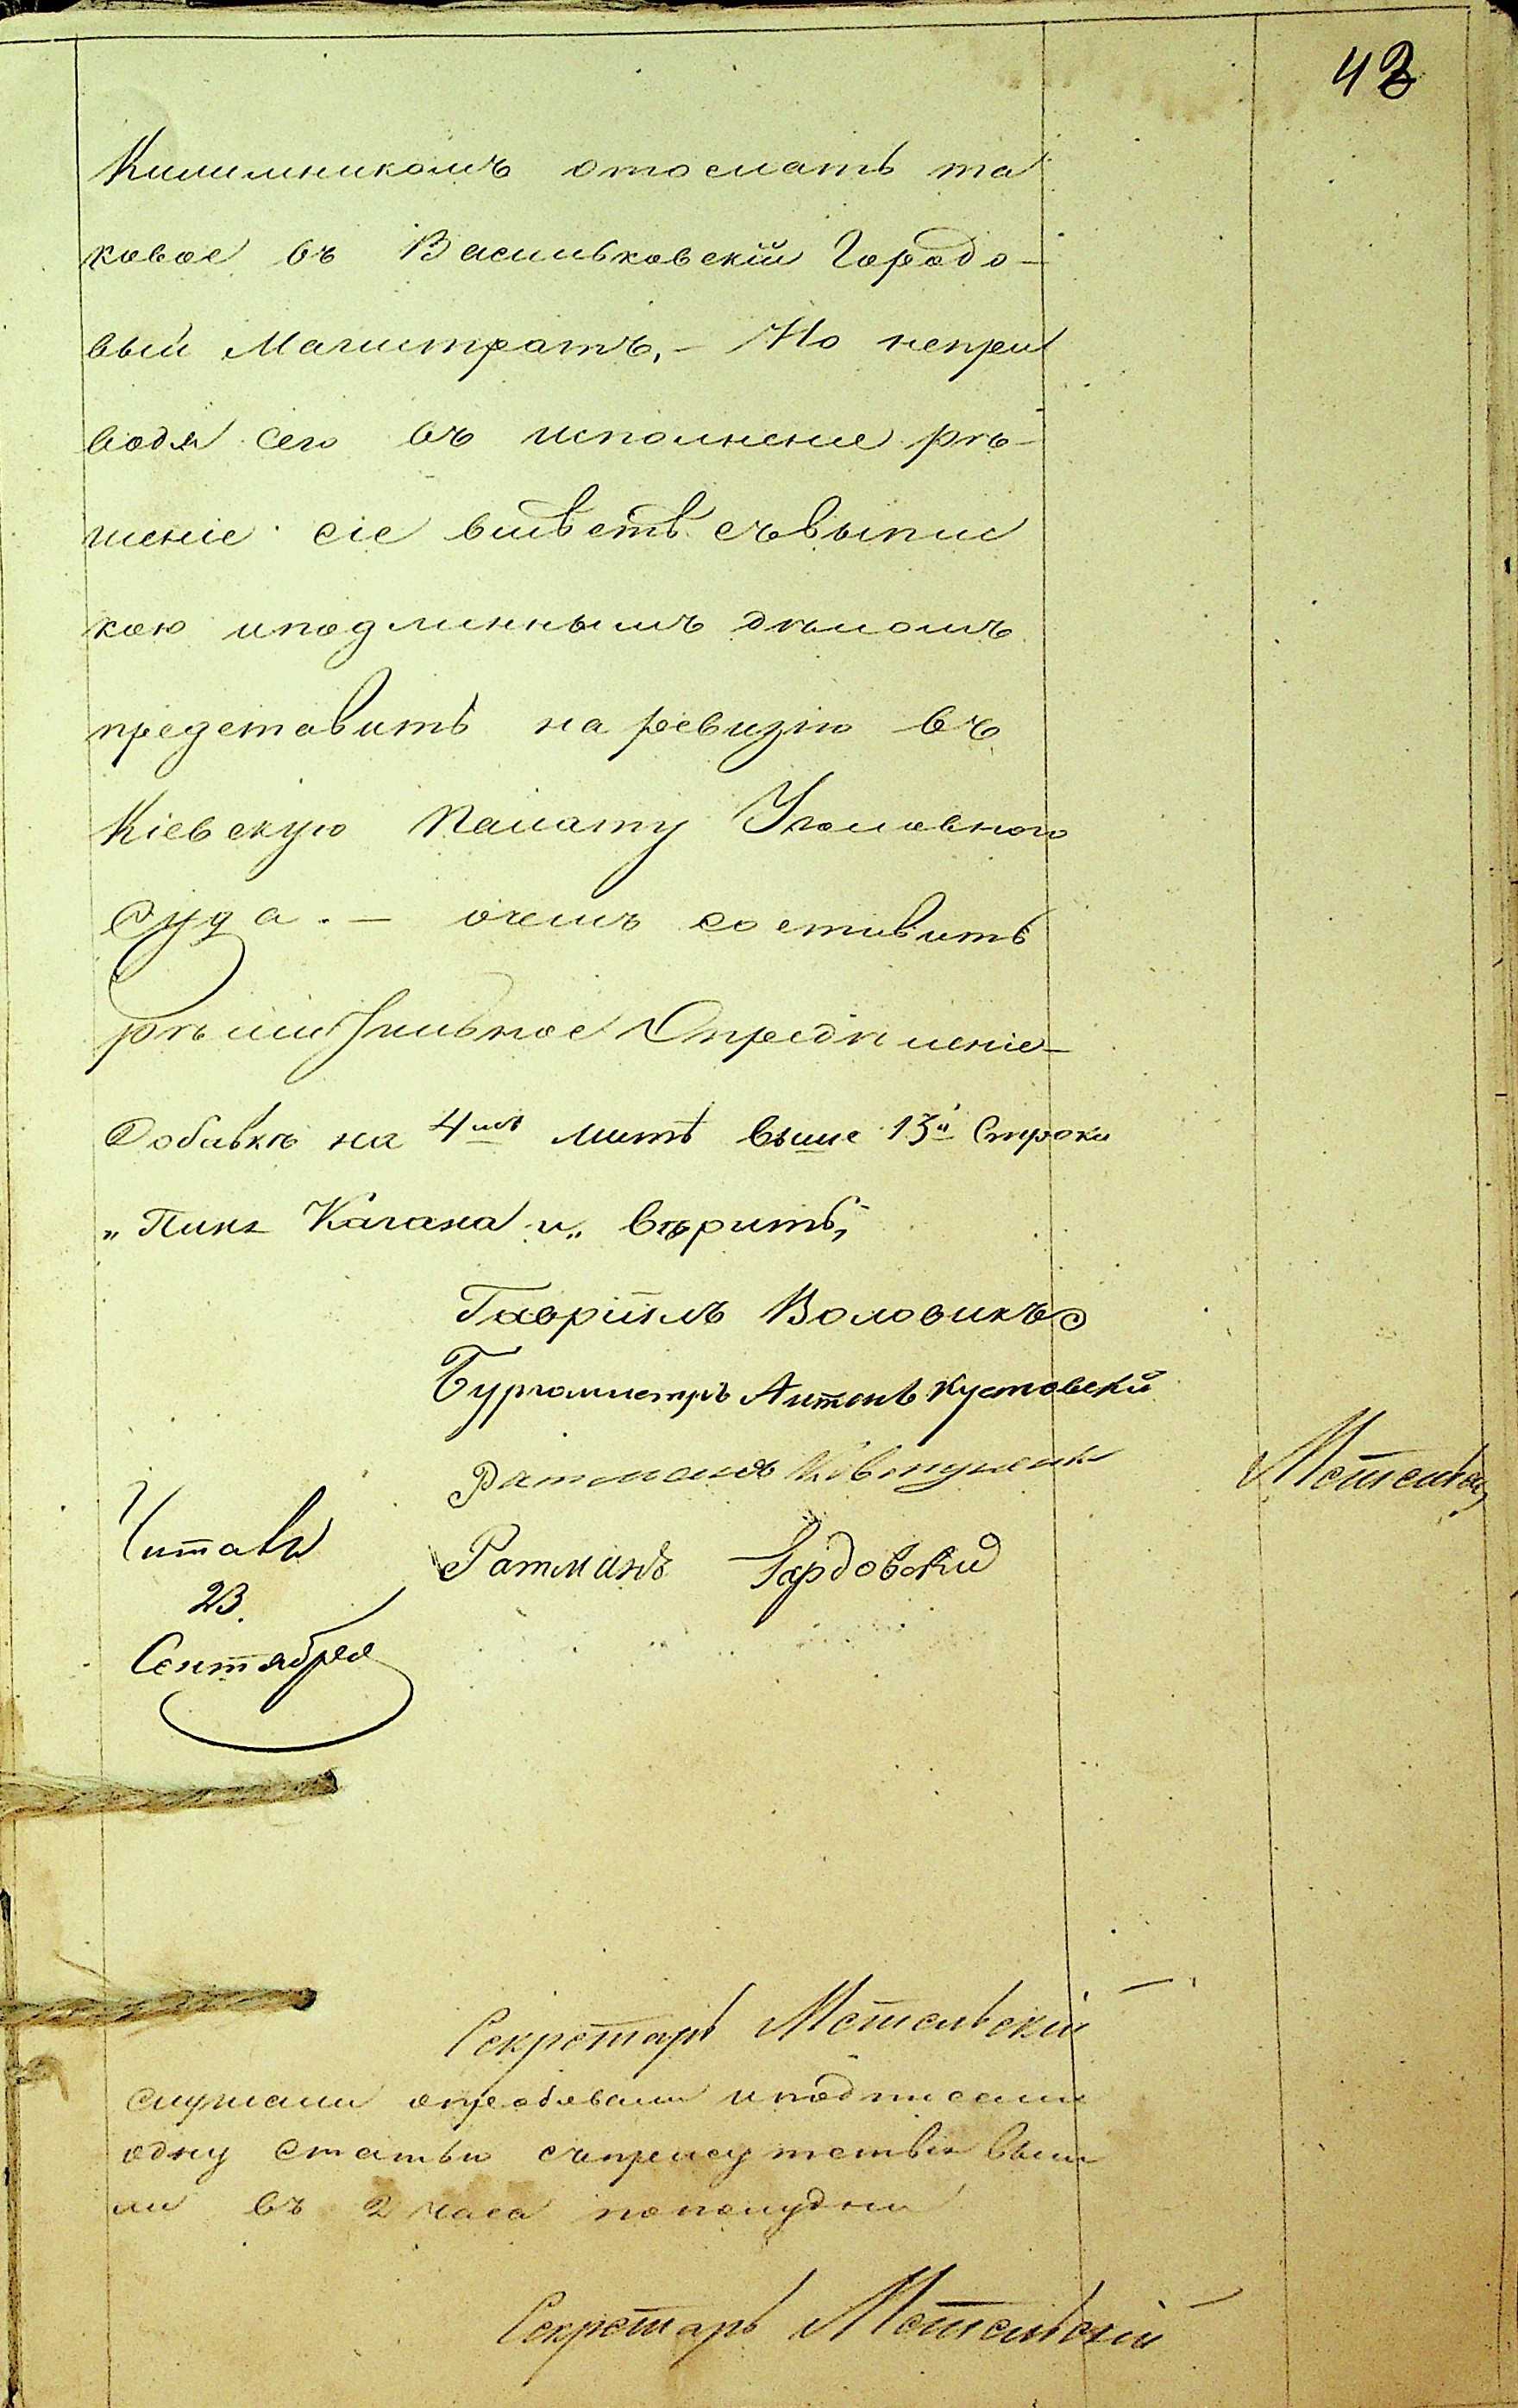 43
Килимникомъ отослать та
ковое въ Васильковскій Городо-
вый Магистратъ, - Но непри
водя сего въ исполненіе рѣ-
шеніе сіе вмѣстѣ съвыпис
кою иподлиннымъ дѣломъ
представить на ревизію въ
Кіевскую Палату Уголовного
Суда. - очемъ составить
рѣшительное Опредѣленіе -
Добавкѣ на 4мъ листѣ выше 13й Строки
„Пинх Кагана и„ вѣрить,
Гавріилъ Воловикъ
Бургомистръ Антонъ Кустовскій
Ратманъ
Ратманъ
Читалъ
23.
Сентября
Секретарь Метельскій
слушали опробовали иподписали
одну статью съприсутствія выш
ли въ 2 часа пополудни
Секретарь Метельскій